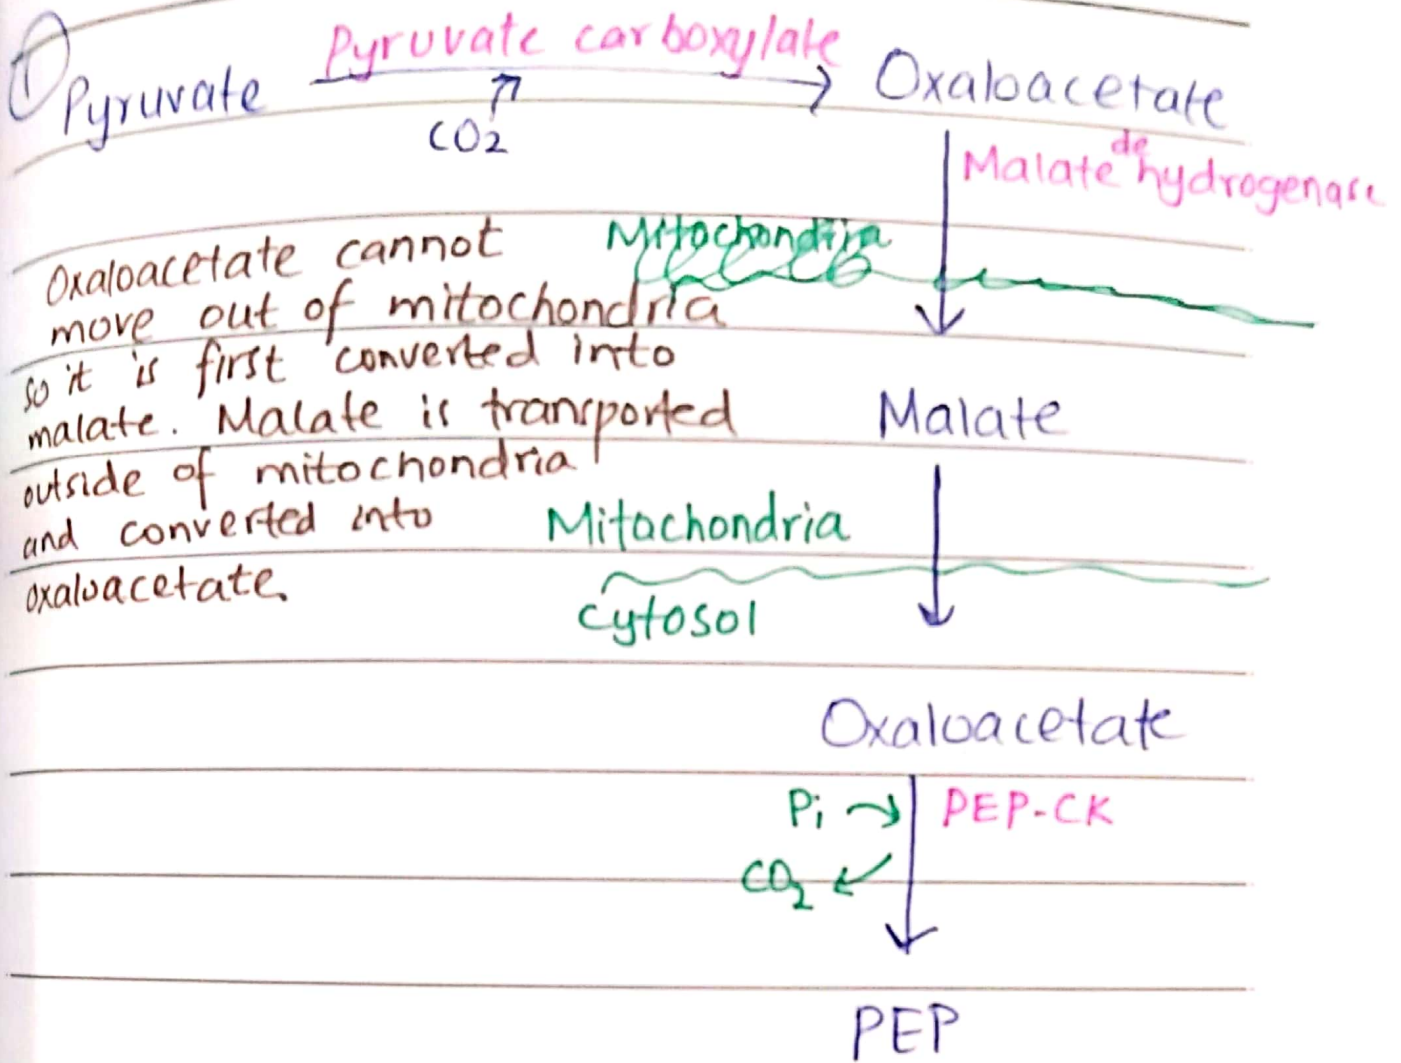 ①
Pyruvate carboxylate
Pyruvate → Oxaloacetate
CO2
Malate dehydrogenase
Mitochondria
Oxaloacetate cannot
move out of mitochondria
so it is first converted into
malate. Malate is transported
outside of mitochondria
and converted into
oxaloacetate.
Malate
Mitochondria
cytosol
Oxaloacetate
Pi
PEP-CK
CO2
PEP